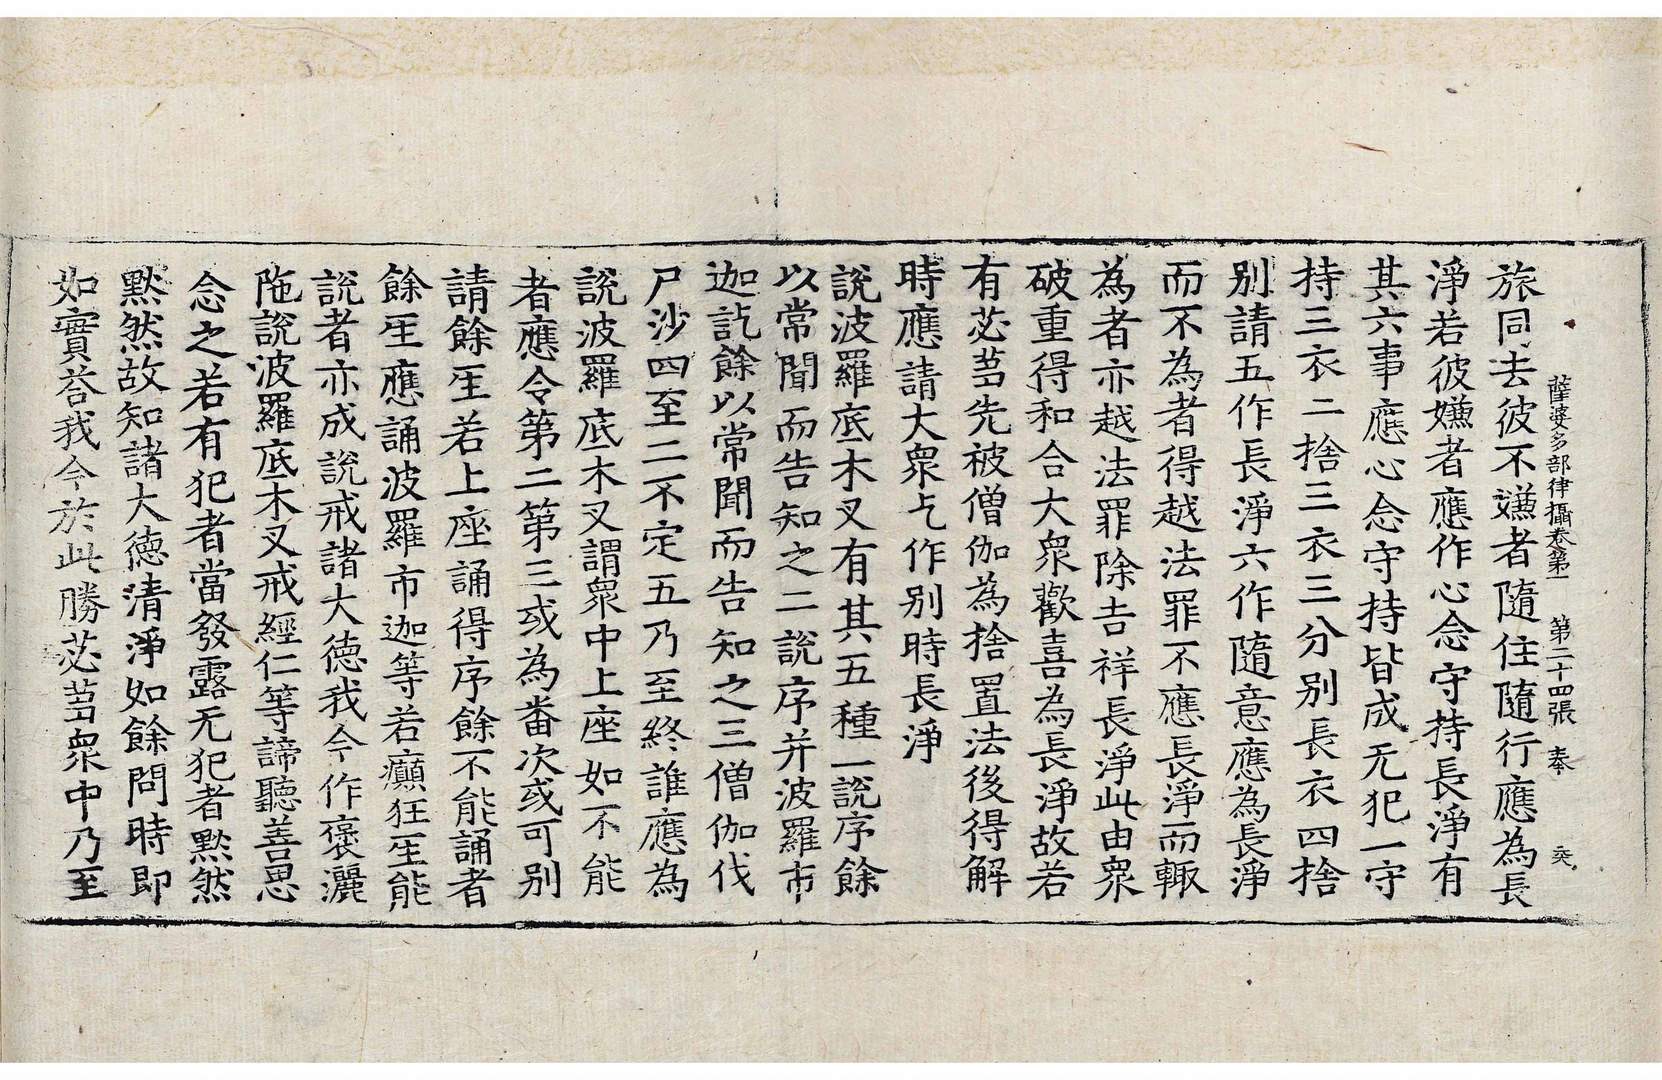 薩婆多部律攝卷第一　第二十四張　奉
旅同去彼不嫌者隨住隨行應為長
淨若彼嫌者應作心念守持長淨有
其六事應心念守持皆成无犯一守
持三衣二捨三衣三分别長衣四捨
别請五作長淨六作隨意應為長淨
而不為者得越法罪不應長淨而輙
為者亦越法罪除吉祥長淨此由衆
破重得和合大衆歡喜為長淨故若
有苾芻先被僧伽為捨置法後得解
時應請大衆乞作别時長淨
説波羅底木叉有其五種一説序餘
以常聞而告知之二説序并波羅市
迦訖餘以常聞而告知之三僧伽伐
尸沙四至二不定五乃至終誰應為
説波羅底木叉謂衆中上座如不能
者應令第二第三或為番次或可别
請餘𤯔若上座誦得序餘不能誦者
餘𤯔應誦波羅市迦等若癲狂𤯔能
説者亦成説戒諸大德我今作襃灑
陁説波羅底木叉戒經仁等諦聽善思
念之若有犯者當發露无犯者默然
默然故知諸大德清淨如餘問時即
如實荅我今於此勝苾芻衆中乃至